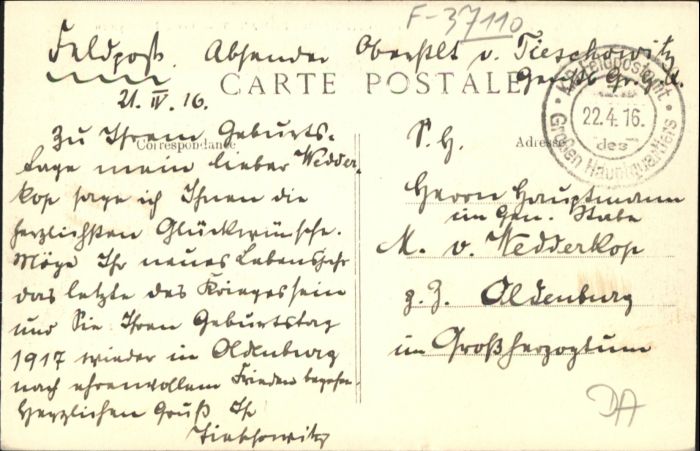 F-37110
Feldpost. Absender Oberstlt v. Tieschowitz
CARTE POSTALE
21. IV. 16.
Correspondance
Zu Ihrem Geburts-
tage mein lieber Wedder-
kop sage ich Ihnen die
herzlichsten Glückwünsche.
Möge Ihr neues Lebensjahr
das letzte des Krieges sein
und Sie Ihren Geburtstag
1917 wieder in Oldenburg
nach ehrenvollem Frieden begehen.
Herzlichen Gruß Ihr
Tieschowitz
K.D. Feldpostamt
22.4.16.
des
Großen Hauptquartiers
Adresse
S. H.
Herrn Hauptmann
im Gen. Stabe
M. v. Wedderkop
z. Z. Oldenburg
im Großherzogtum
DA